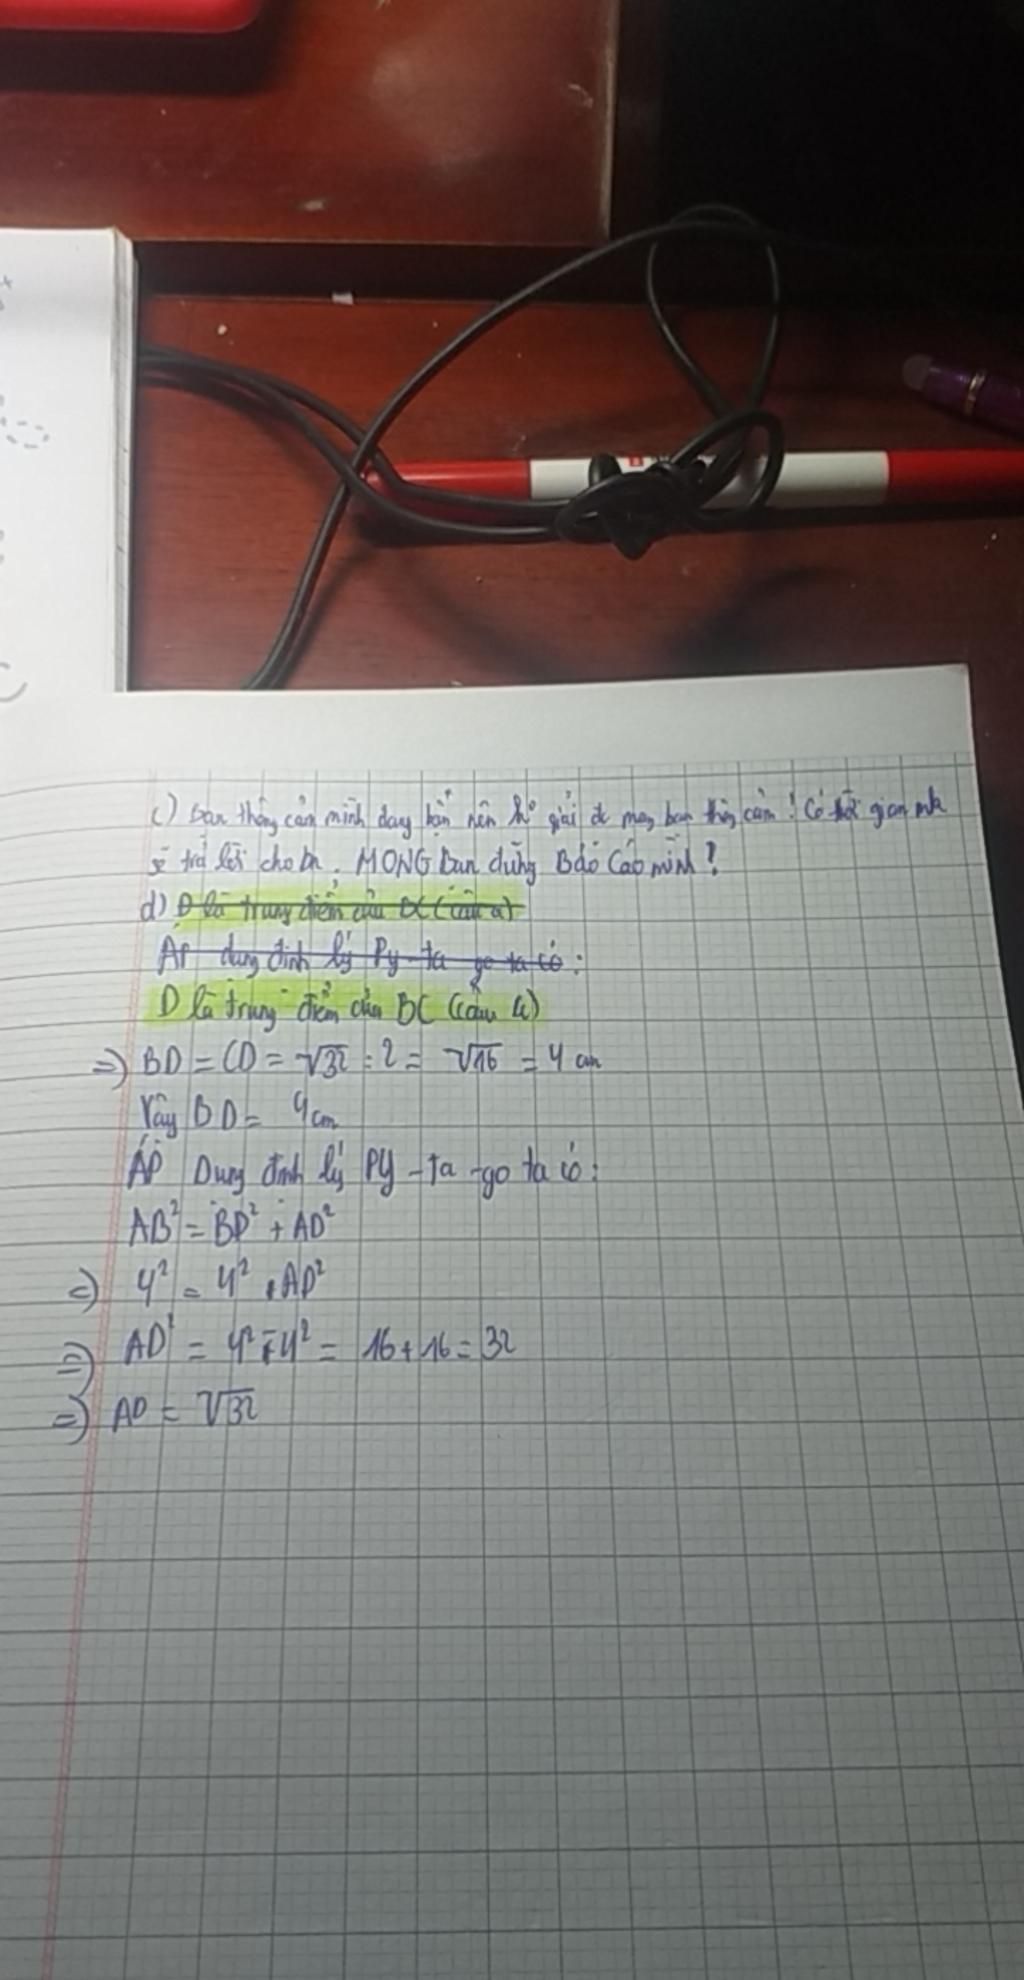 c) Bạn thông cảm mình đang bận nên ko giải đc mong bạn thông cảm! Có thời gian mk
sẽ trả lời cho bn. MONG bạn đừng Báo Cáo mình!
d) D là trung điểm của BC (câu a)
Áp dụng định lý Py-ta go ta có:
D là trung điểm của BC (câu a)
=> BD = CD = √32 : 2 = √16 = 4 cm
Vậy BD = 4cm
ÁP Dụng định lý PY-Ta-go ta có:
AB² = BD² + AD²
=> 4² = 4² + AD²
=> AD² = 4² + 4² = 16 + 16 = 32
=> AD = √32